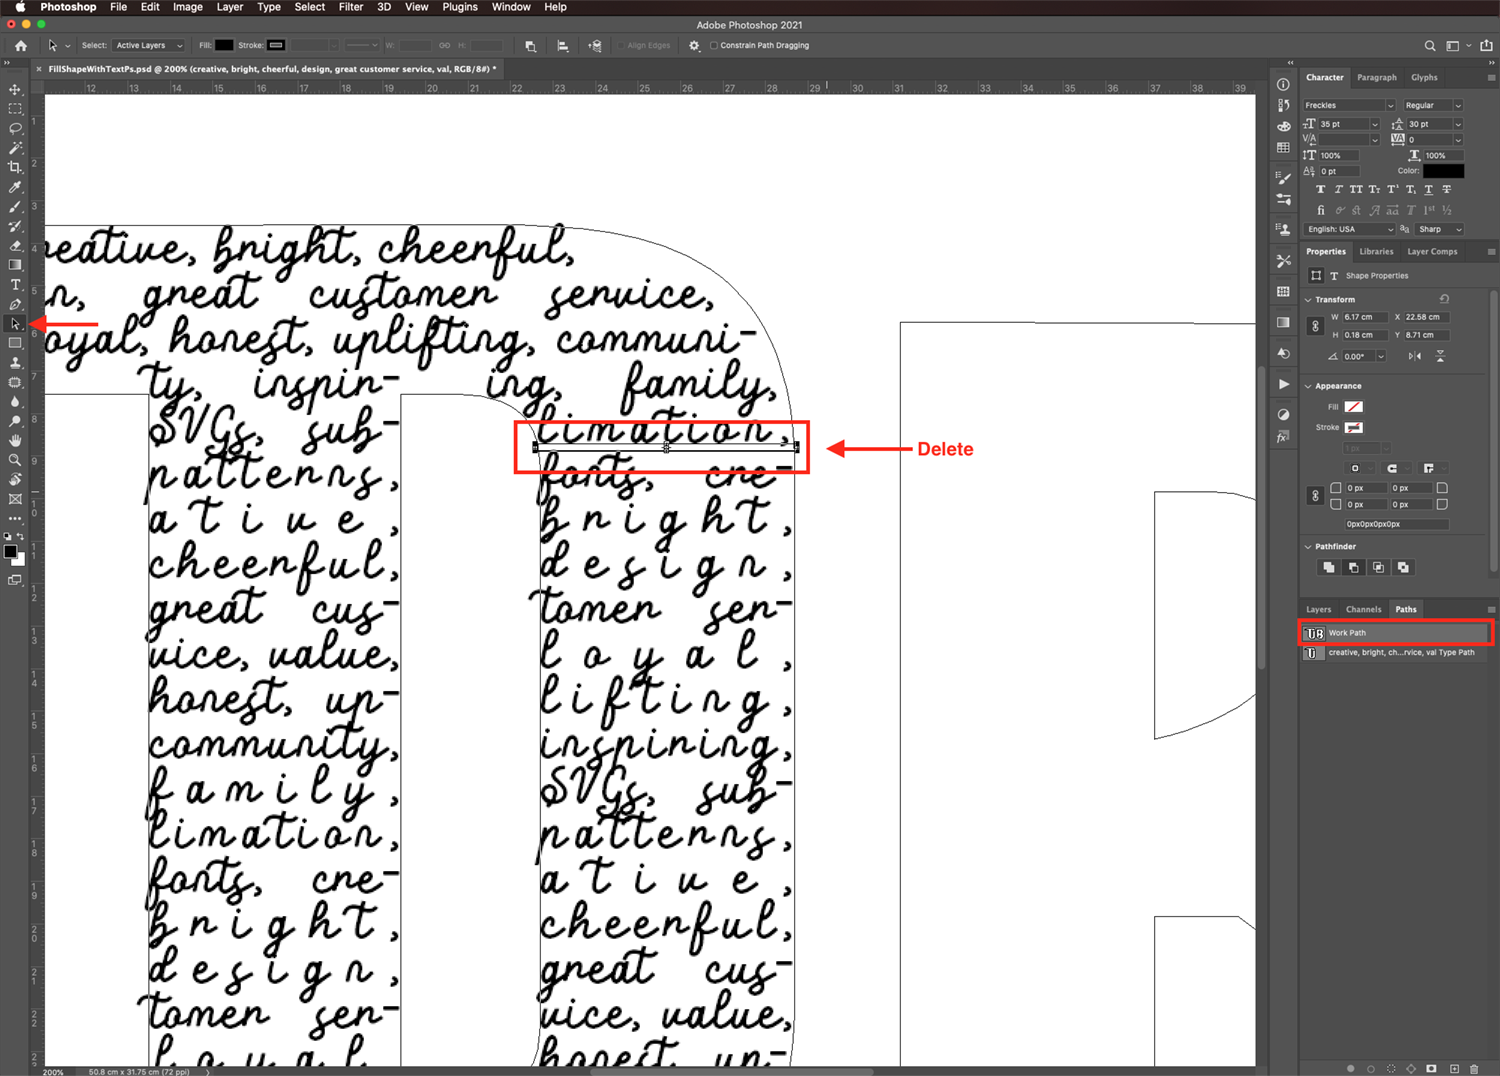 Photoshop File Edit Image Layer Type Select Filter 3D View Plugins Window Help
Adobe Photoshop 2021
Select: Active Layers Fill: Stroke: W: H: Align Edges Constrain Path Dragging
× FillShapeWithTextPs.psd @ 200% (creative, bright, cheerful, design, great customer service, val, RGB/8#) *
12 13 14 15 16 17 18 19 20 21 22 23 24 25 26 27 28 29 30 31 32 33 34 35 36 37 38 39
1
2
3
4
5
6
7
8
9
10
11
12
13
14
15
16
17
18
19
20
21
22
23
reative, bright, cheerful,
n, great customer service,
oyal, honest, uplifting, communi-
ty, inspir- ing, family,
SVGs, sub-
patterns,
ative,
cheerful,
great cus-
vice, value,
honest, up-
community,
family,
limation,
fonts, cre-
bright,
design,
tomer ser-
loyal
limation,
fonts, cre-
bright,
design,
tomer ser-
loyal,
lifting,
inspiring,
SVGs, sub-
patterns,
ative,
cheerful,
great cus-
vice, value,
honest, up-
Delete
Character Paragraph Glyphs
Freckles Regular
35 pt 30 pt
0
100% 100%
0 pt Color:
English: USA Sharp
Properties Libraries Layer Comps
Shape Properties
Transform
W 6.17 cm X 22.58 cm
H 0.18 cm Y 8.71 cm
0.00°
Appearance
Fill
Stroke
1 px
0 px 0 px
0 px 0 px
0px0px0px0px
Pathfinder
Layers Channels Paths
Work Path
creative, bright, ch...rvice, val Type Path
200% 50.8 cm x 31.75 cm (72 ppi)